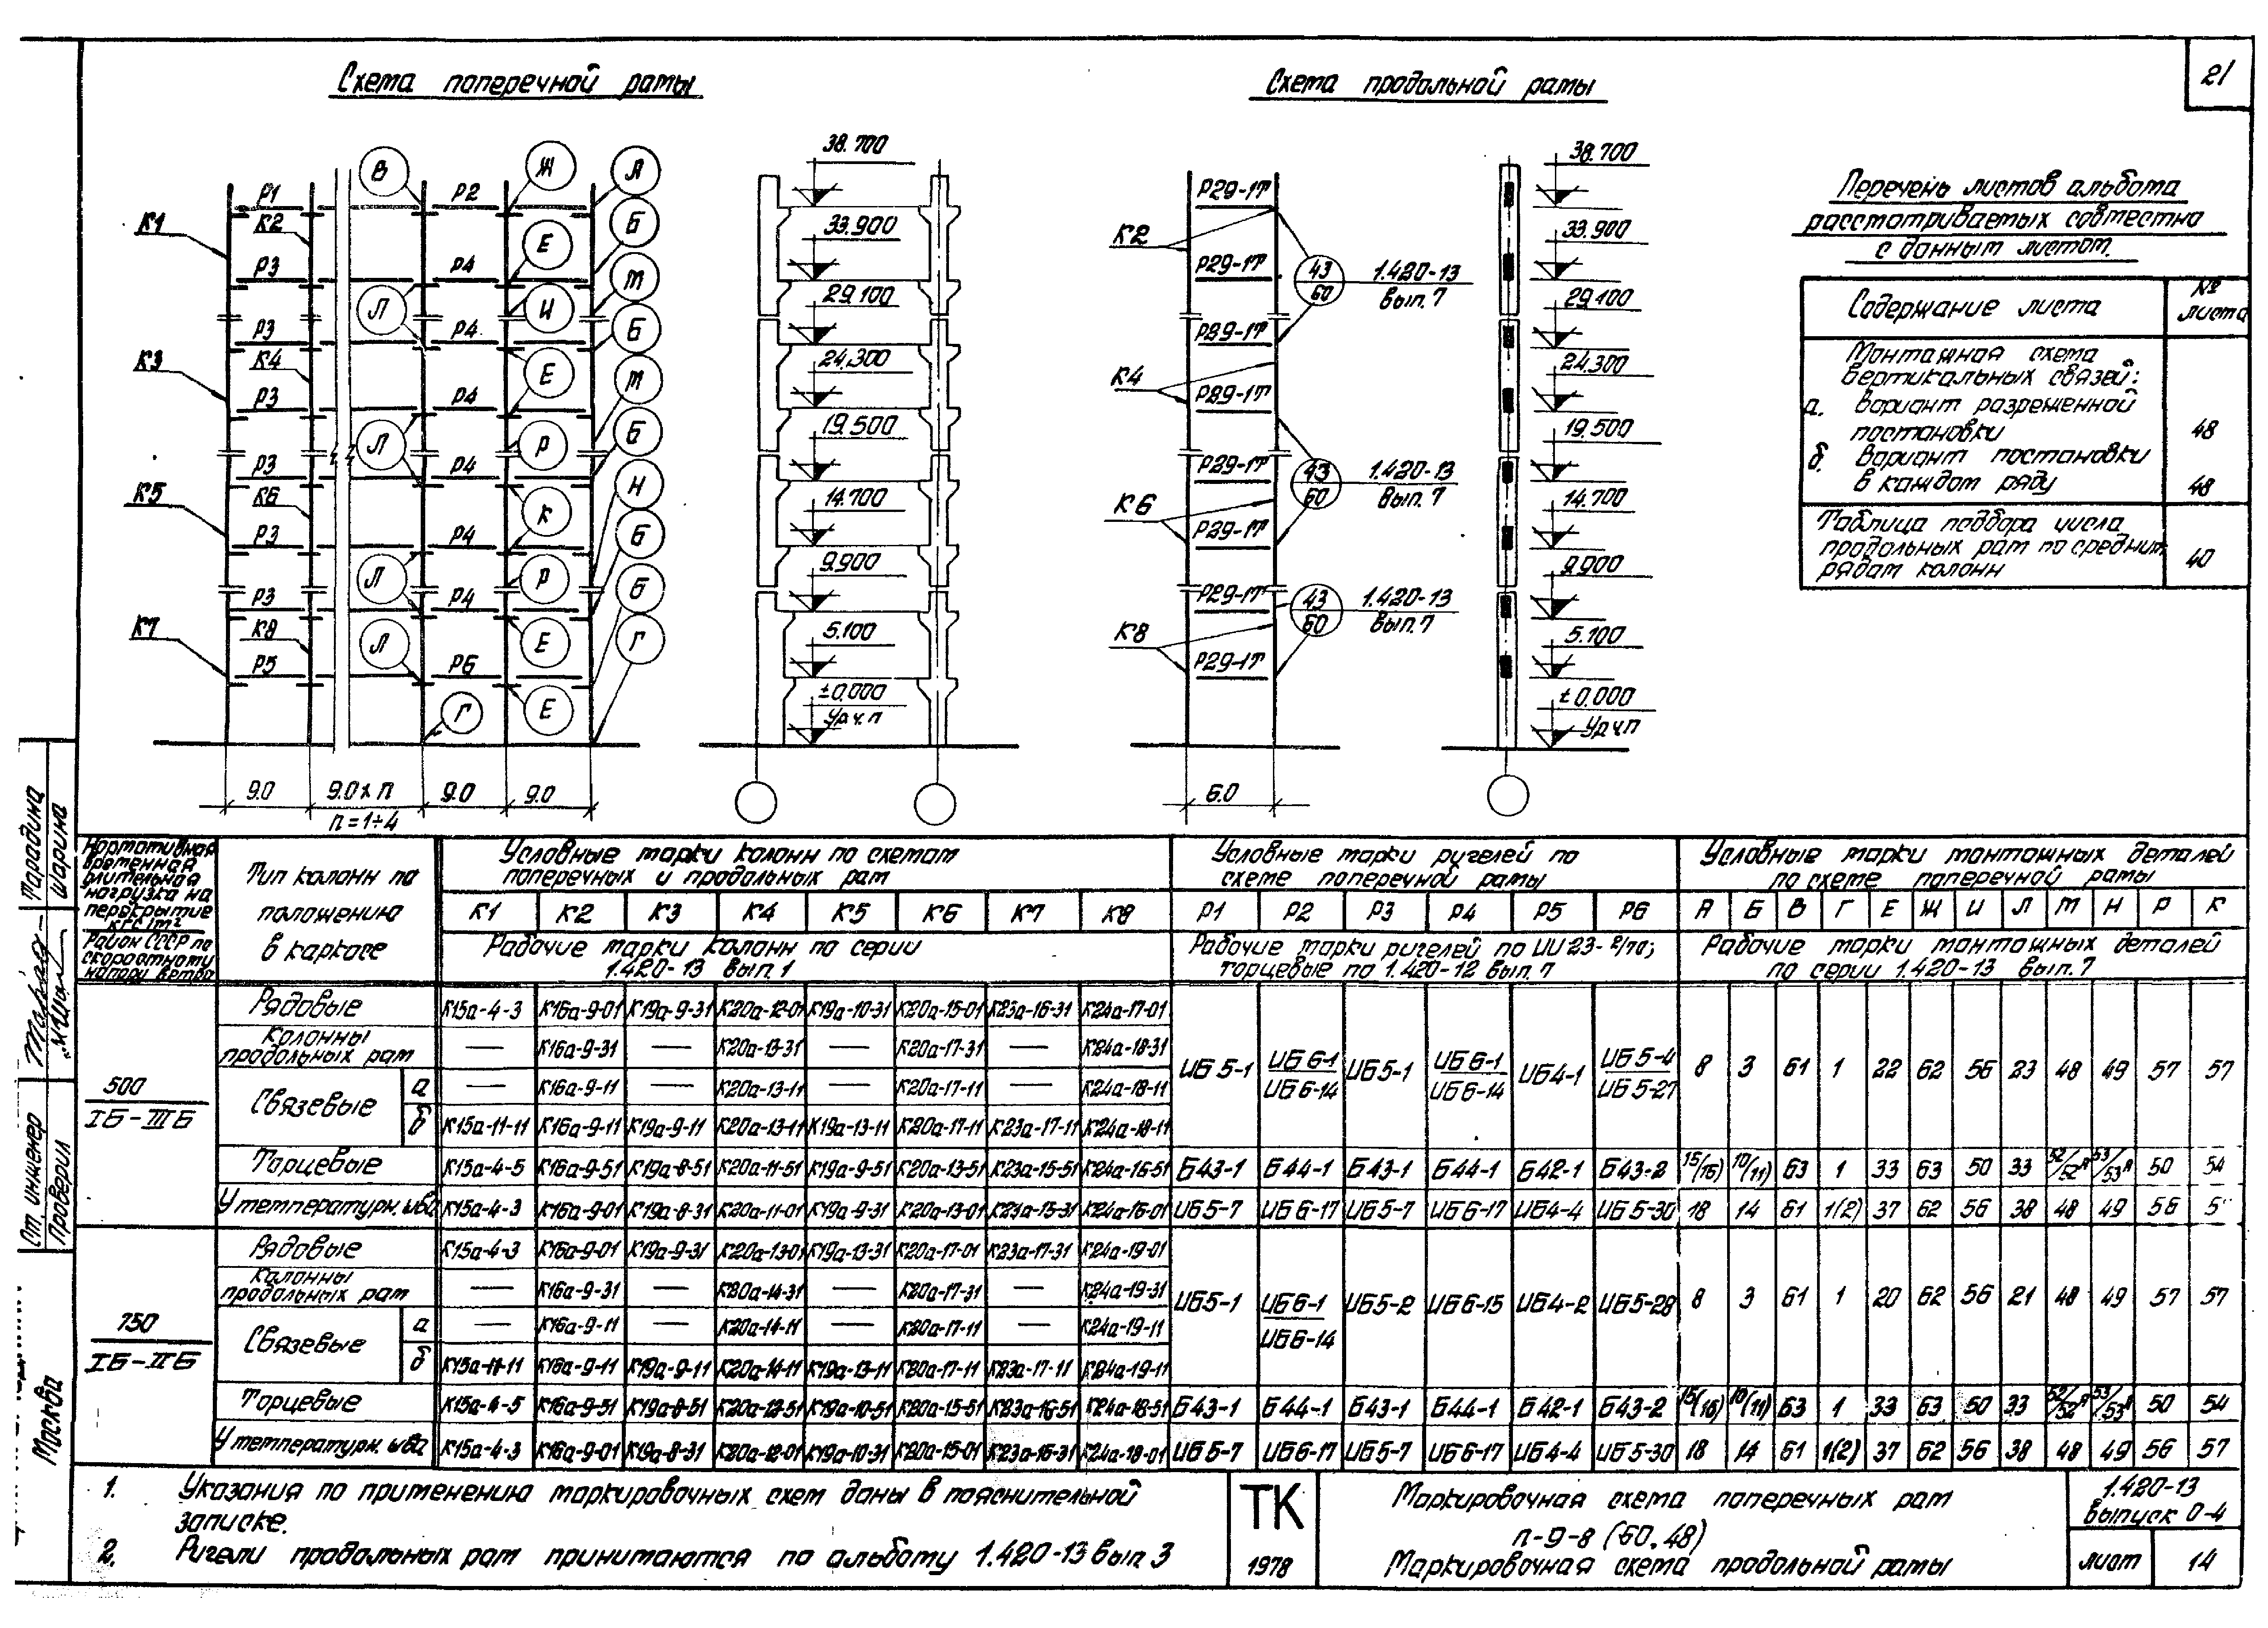 21
Схема поперечной рамы
Схема продольной рамы
В Ж А
Р1 Р2
К1 К2 Б
Е
Р3 Р4 М
Л И
Р3 Р4 Б
К3 К4 Е
М
Р3 Р4
Л Р Б
Р3 Р4
К5 К6 К Н
Р3 Р4 Б
Л Р
Р3 Р4 Б
К7 К8 Л Е Г
Р5 Р6
Г Е
9.0 9.0 х п 9.0 9.0
п=1÷4
38.700
33.900
29.100
24.300
19.500
14.700
9.900
5.100
±0.000
Ур.ч.п
К2
К4
К6
К8
Р29-1т
Р29-1т
Р29-1т
Р29-1т
Р29-1т
Р29-1т
Р29-1т
Р29-1т
43 1.420-13
60 вып. 7
43 1.420-13
60 вып. 7
43 1.420-13
60 вып. 7
6.0
38.700
33.900
29.100
24.300
19.500
14.700
9.900
5.100
±0.000
Ур.ч.п
Перечень листов альбома
рассматриваемых совместно
с данным листом.
Содержание листа № листа
Монтажная схема
вертикальных связей:
а. вариант разреженной
постановки 48
б. вариант постановки
в каждом ряду 48
Таблица подбора числа
продольных рам по средним
рядам колонн 40
Нормативная
временная
длительная
нагрузка на
перекрытие
кгс/м²
Район СССР по
скоростному
напору ветра
Тип колонн по
положению
в каркасе
Условные марки колонн по схемам
поперечных и продольных рам
Условные марки ригелей по
схеме поперечной рамы
Условные марки монтажных деталей
по схеме поперечной рамы
К1 К2 К3 К4 К5 К6 К7 К8 Р1 Р2 Р3 Р4 Р5 Р6 А Б В Г Е Ж И Л М Н Р К
Рабочие марки колонн по серии
1.420-13 вып. 1
Рабочие марки ригелей по ИИ 23-2/70;
торцевые по 1.420-12 вып. 7
Рабочие марки монтажных деталей
по серии 1.420-13 вып. 7
500
IБ-IIIБ
Рядовые К15а-4-3 К16а-9-01 К19а-9-31 К20а-12-01 К19а-10-31 К20а-15-01 К23а-16-31 К24а-17-01
Колонны
продольных рам — К16а-9-31 — К20а-13-31 — К20а-17-31 — К24а-18-31
ИБ5-1 ИБ6-1 ИБ5-1 ИБ6-1 ИБ4-1 ИБ5-4 8 3 61 1 22 62 56 23 48 49 57 57
ИБ6-14 ИБ6-14 ИБ5-27
Связевые а — К16а-9-11 — К20а-13-11 — К20а-17-11 — К24а-18-11
б К15а-11-11 К16а-9-11 К19а-9-11 К20а-13-11 К19а-13-11 К20а-17-11 К23а-17-11 К24а-18-11
Торцевые К15а-4-5 К16а-9-51 К19а-8-51 К20а-11-51 К19а-9-51 К20а-13-51 К23а-15-51 К24а-16-51 Б43-1 Б44-1 Б43-1 Б44-1 Б42-1 Б43-2 15/(16) 10/(11) 63 1 33 63 50 33 52/52А 53/53А 50 54
У температурн. шва К15а-4-3 К16а-9-01 К19а-8-31 К20а-11-01 К19а-9-31 К20а-13-01 К23а-15-31 К24а-16-01 ИБ5-7 ИБ6-17 ИБ5-7 ИБ6-17 ИБ4-4 ИБ5-30 18 14 61 1(2) 37 62 56 38 48 49 56
750
IБ-IIБ
Рядовые К15а-4-3 К16а-9-01 К19а-9-31 К20а-13-01 К19а-13-31 К20а-17-01 К23а-17-31 К24а-19-01
Колонны
продольных рам — К16а-9-31 — К20а-14-31 — К20а-17-31 — К24а-19-31
ИБ5-1 ИБ6-1 ИБ5-2 ИБ6-15 ИБ4-2 ИБ5-28 8 3 61 1 20 62 56 21 48 49 57 57
ИБ6-14
Связевые а — К16а-9-11 — К20а-14-11 — К20а-17-11 — К24а-19-11
б К15а-11-11 К16а-9-11 К19а-9-11 К20а-14-11 К19а-13-11 К20а-17-11 К23а-17-11 К24а-19-11
Торцевые К15а-4-5 К16а-9-51 К19а-8-51 К20а-12-51 К19а-10-51 К20а-15-51 К23а-16-51 К24а-18-51 Б43-1 Б44-1 Б43-1 Б44-1 Б42-1 Б43-2 15/(16) 10/(11) 63 1 33 63 50 33 52/52А 53/53А 50 54
У температурн. шва К15а-4-3 К16а-9-01 К19а-8-31 К20а-12-01 К19а-10-31 К20а-15-01 К23а-16-31 К24а-18-01 ИБ5-7 ИБ6-17 ИБ5-7 ИБ6-17 ИБ4-4 ИБ5-30 18 14 61 1(2) 37 62 56 38 48 49 56 57
1. Указания по применению маркировочных схем даны в пояснительной
записке.
2. Ригели продольных рам принимаются по альбому 1.420-13 вып 3
ТК
1978
Маркировочная схема поперечных рам
п-9-8 (60.48)
Маркировочная схема продольной рамы
1.420-13
выпуск 0-4
лист 14
Ст. инженер
Проверил
Шарина
Москва